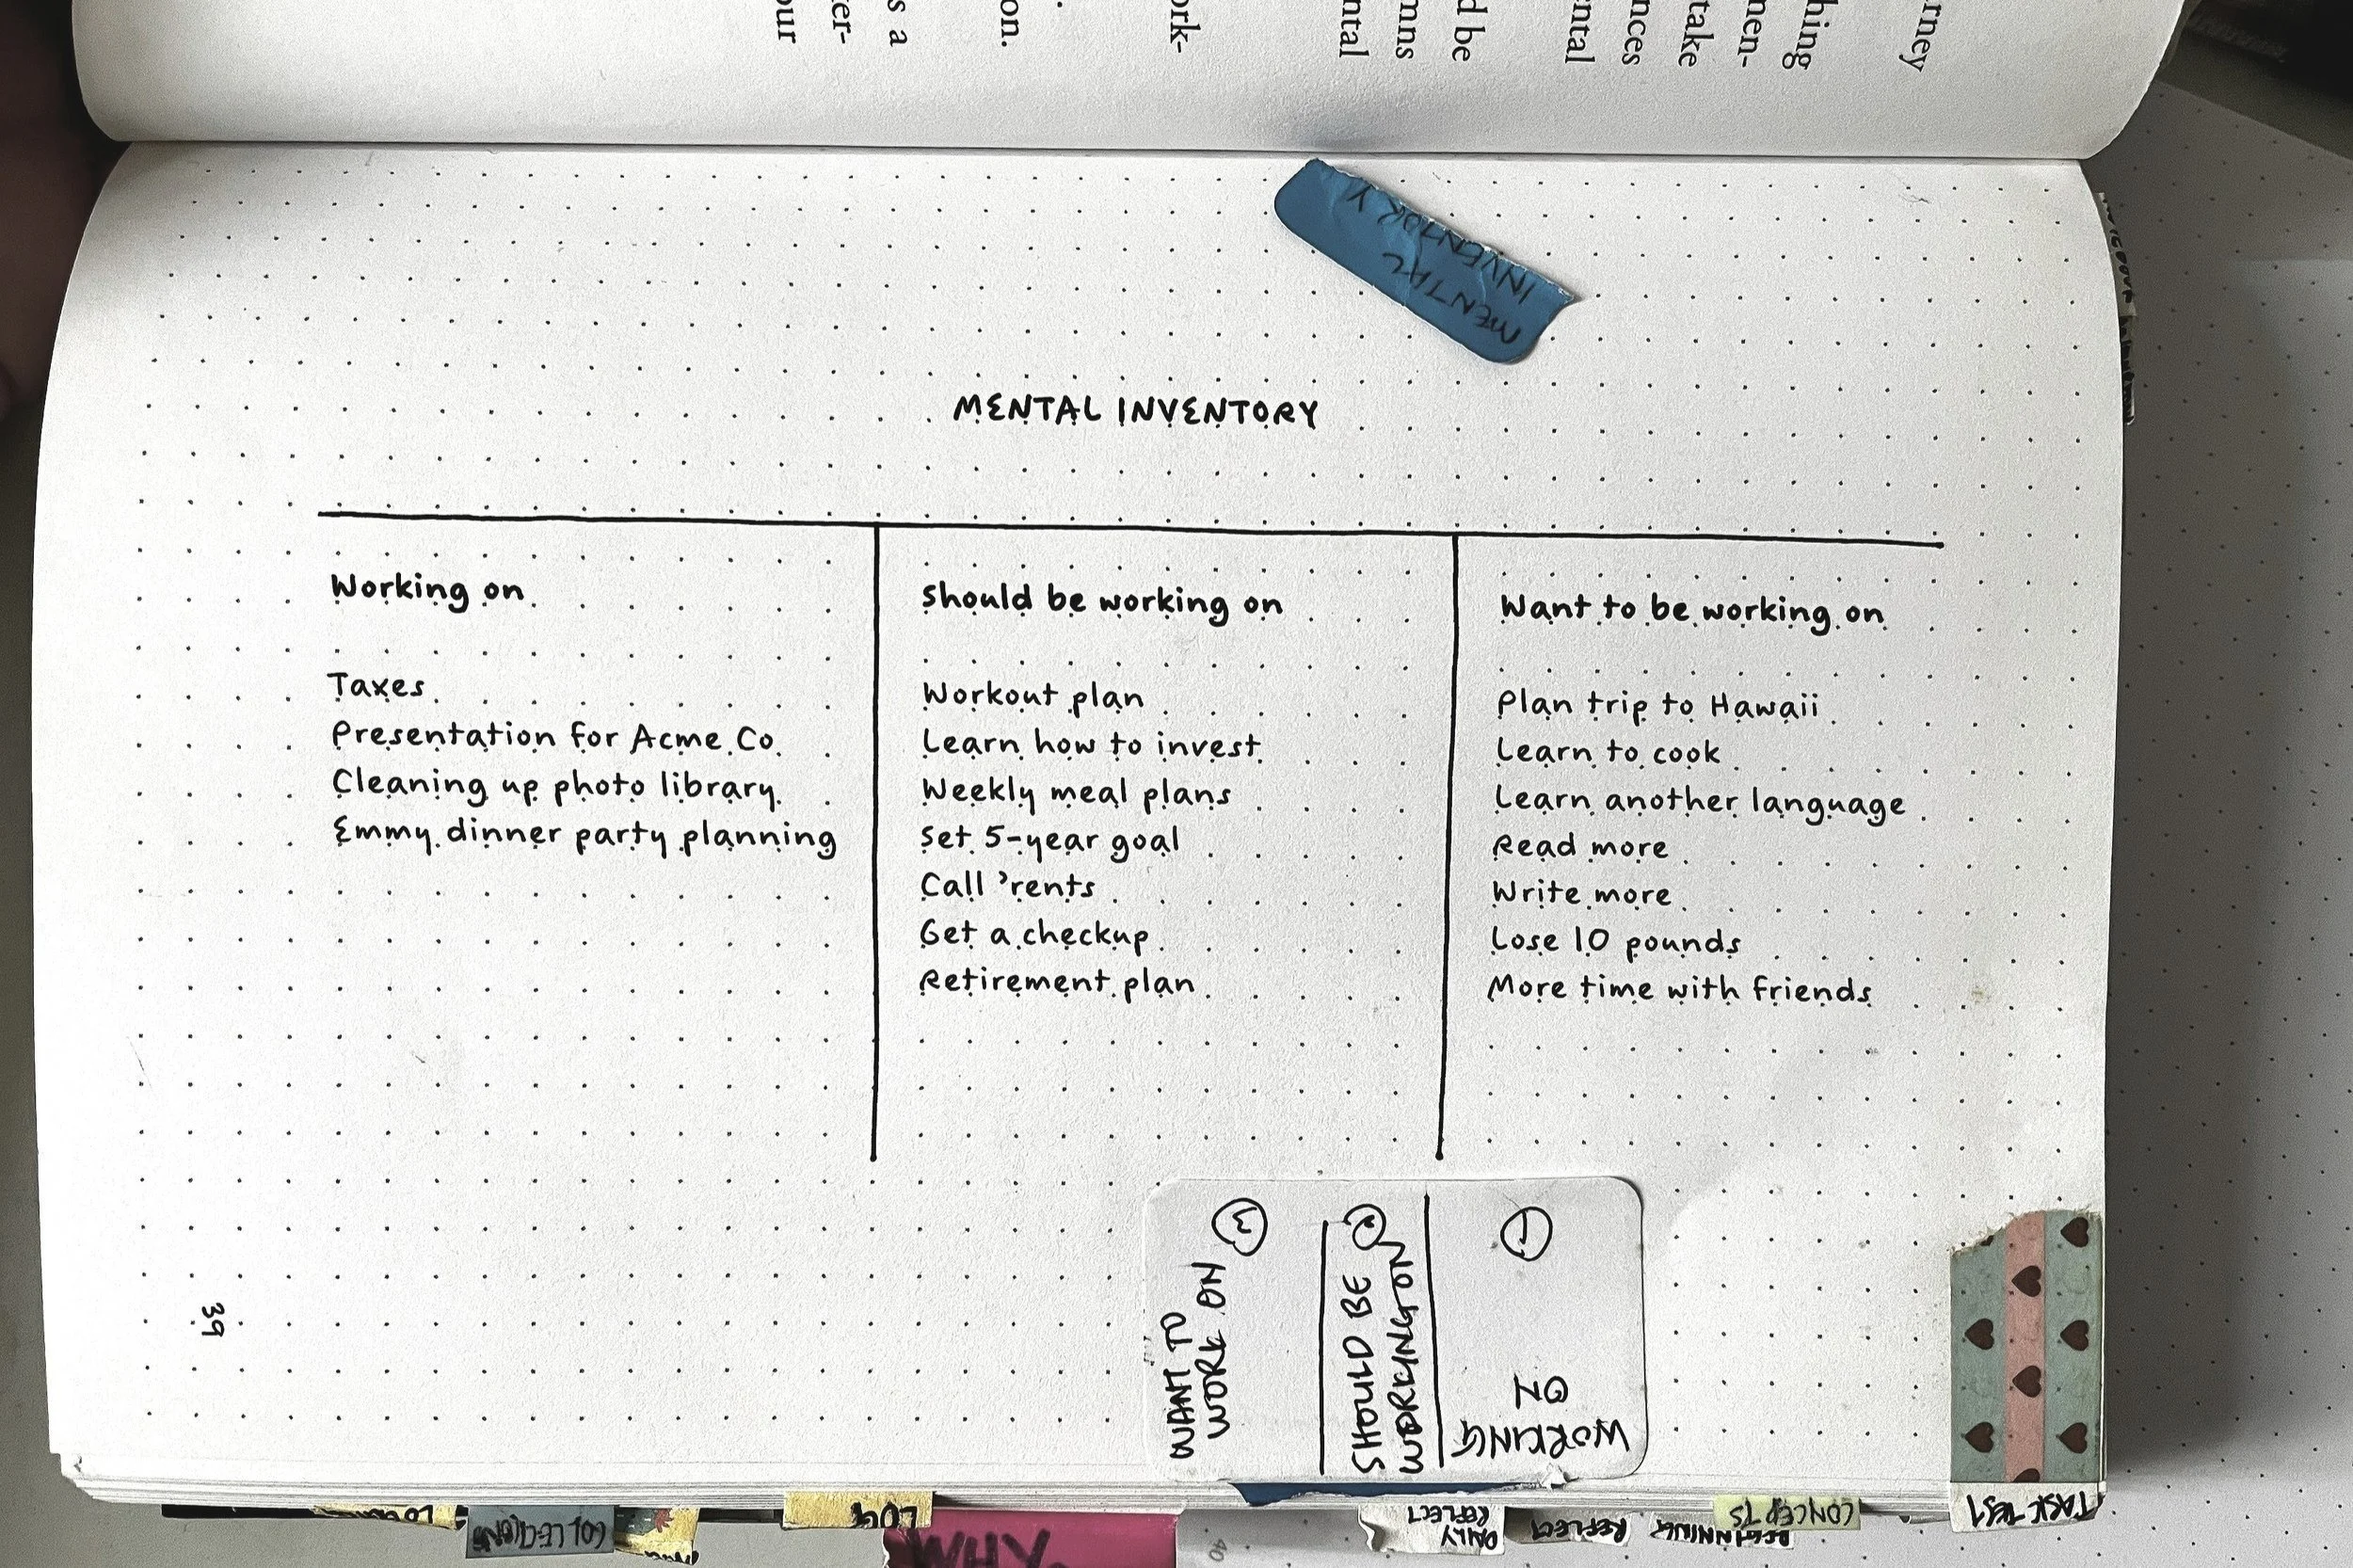 our
er-
s a
on.
ork-
ntal
mns
d be
ntal
nces
take
men-
hing
rney
MENTAL
INVENTORY
MENTAL INVENTORY
Working on
Taxes
Presentation for Acme Co.
Cleaning up photo library
Emmy dinner party planning
Should be working on
Workout plan
Learn how to invest
Weekly meal plans
Set 5-year goal
Call 'rents
Get a checkup
Retirement plan
Want to be working on
Plan trip to Hawaii
Learn to cook
Learn another language
Read more
Write more
Lose 10 pounds
More time with friends
WANT TO
WORK ON
SHOULD BE
WORKING ON
WORKING
ON
39
COLLECTIONS
LOG
WHY
40
DAILY
REFLECT
REFLECT
BEGINNING
CONCEPTS
TASK TEST